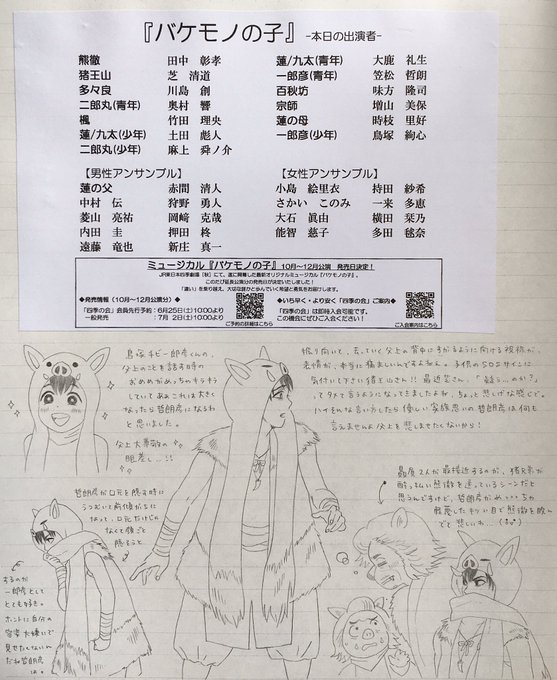 『バケモノの子』 -本日の出演者-
熊徹 田中 彰孝
猪王山 芝 清道
多々良 川島 創
二郎丸(青年) 奥村 響
楓 竹田 理央
蓮/九太(少年) 土田 彪人
二郎丸(少年) 麻上 舜ノ介
蓮/九太(青年) 大鹿 礼生
一郎彦(青年) 笠松 哲朗
百秋坊 味方 隆司
宗師 増山 美保
蓮の母 時枝 里好
一郎彦(少年) 鳥塚 絢心
【男性アンサンブル】
蓮の父 赤間 清人
中村 伝 狩野 勇人
菱山 亮祐 岡﨑 克哉
内田 圭 押田 柊
遠藤 竜也 新庄 真一
【女性アンサンブル】
小島 絵里衣 持田 紗希
さかい このみ 一来 多恵
大石 眞由 横田 栞乃
能智 慈子 多田 毬奈
ミュージカル『バケモノの子』10月~12月公演 発売日決定!
JR東日本四季劇場[秋]にて、遂に開幕した最新オリジナルミュージカル『バケモノの子』。
このたび延長公演分の発売日が決定いたしました!
◆発売情報(10月~12月公演分)◆
「四季の会」会員先行予約:6月25日(土)10:00より
一般発売: 7月 2日(土)10:00より
ご予約の詳細はこちら
◆いち早く・より安く「四季の会」ご案内◆
「四季の会」は即時入会可能です。
この機会にぜひご入会ください!
ご入会案内はこちら
鳥塚チビ一郎彦くんの、
父上のことを話す時の
おめめがめっちゃキラキラ
していてああこれは大きく
なったら哲朗彦になるわ
と思いました。
父上大尊敬の
眼差し…!!
振り向いて、去っていく父上の背中にすがるように向ける視線が、
表情が、本当に痛ましいんですよねえ。子供のSOSサインに
気付いて下さい猪王山さん!!最近芝さん、「疑うのか?」
って
言うようになってましたよね、ちょっと悲しげな感じで。
言い方したら優しい家族思いの哲朗彦は何も
言えませんよ父上を悲しませたくないから!
哲朗彦が口元を隠す時に
なって、口元だけじゃ
なくて顔ごと
隠そうと
するのが
一郎彦として
とても好き。
ホントに自分の
容姿大嫌いで
見せたくないん
だね哲朗彦
は。
最凶2人が最接近するのが、猪兄弟が
酔っ払い熊徹を送っているシーンだと
思うんですけど、哲朗彦が
軽蔑したキツい目で熊徹を睨ん
でて悲しいわ…